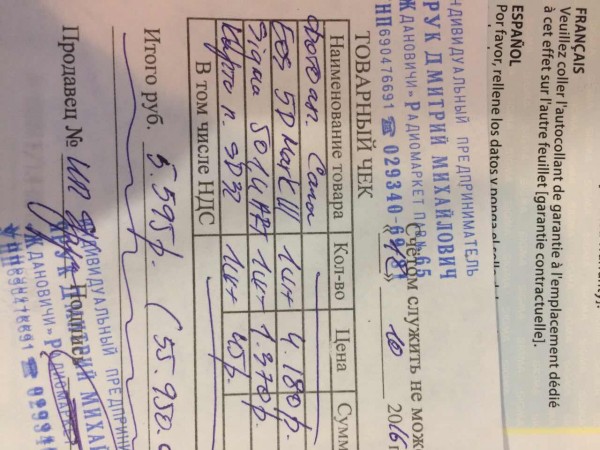 FRANÇAIS
Veuillez coller l'autocollant de garantie à l'emplacement dédié
à cet effet sur l'autre feuillet [garantie contractuelle].
ESPAÑOL
Por favor, rellene los datos y ponga el
НДИВИДУАЛЬНЫЙ ПРЕДПРИНИМАТЕЛЬ
РУК ДМИТРИЙ МИХАЙЛОВИЧ
ЖДАНОВИЧИ» РАДИОМАРКЕТ 65
НП 690476691 ☎ 029340-69-81
Счетом служить не може
«18» 10 2016г
ТОВАРНЫЙ ЧЕК
Наименование товара Кол-во Цена Сумм
Фото ап. Canon
EOS 5D Mark III 1шт 4.180р.
Sigma 50 1,4 ART 1шт 1.370р.
Карта п. SD 32 1шт 45р.
В том числе НДС
Итого руб. 5.595р. (55.950.0
Продавец № ИП Друк
Подпись
ДИВИДУАЛЬНЫЙ ПРЕДПРИНИ
РУК ДМИТРИЙ МИХАЙ
ЖДАНОВИЧИ» РАДИОМАРКЕТ
НП 690476691 ☎ 02934